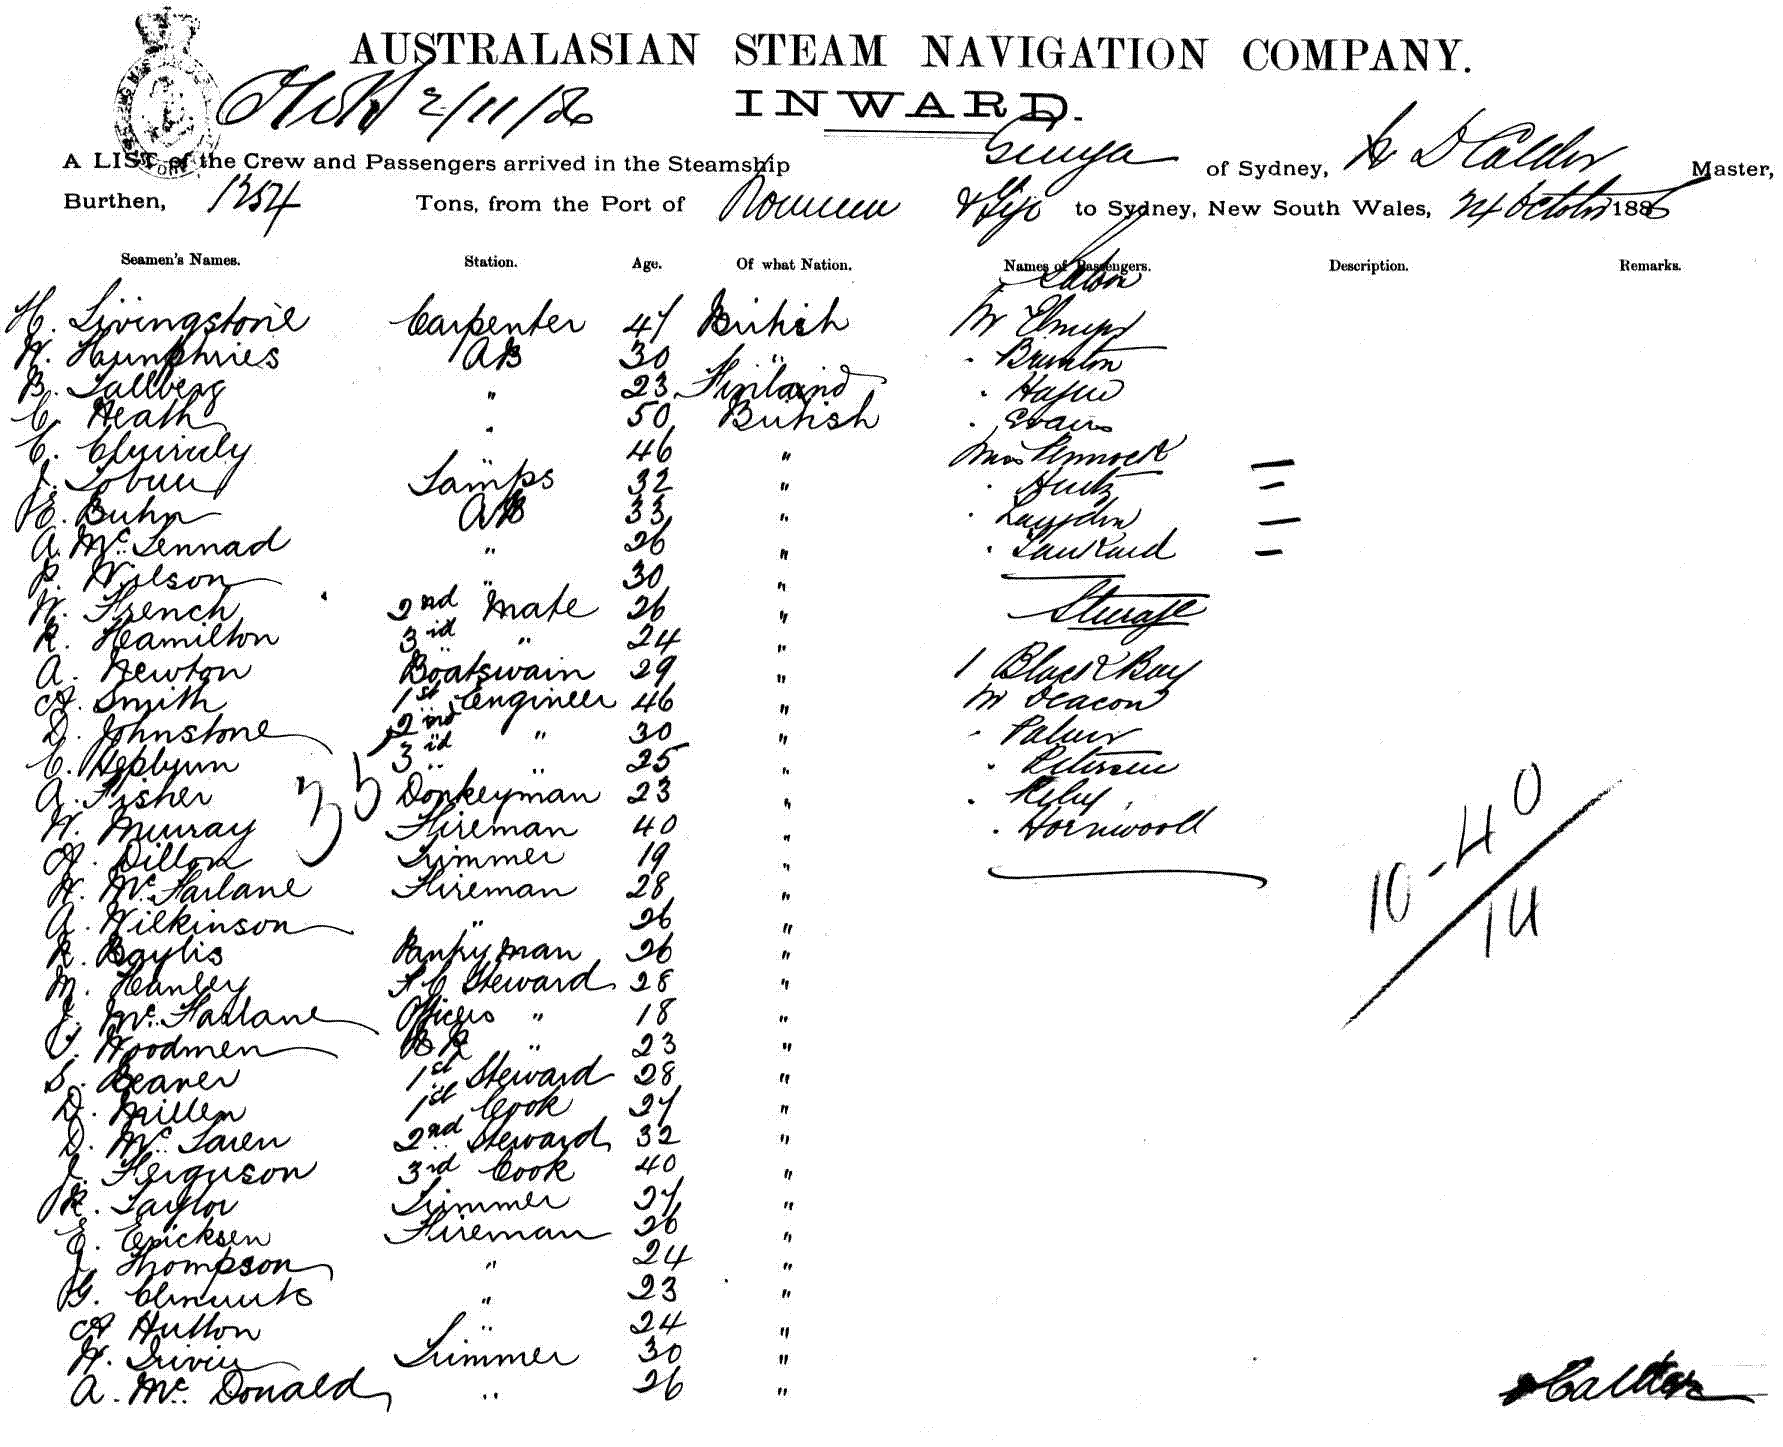 AUSTRALASIAN STEAM NAVIGATION COMPANY.
2/11/86 INWARD.
A LIST of the Crew and Passengers arrived in the Steamship Gunga of Sydney, D Calder Master,
Burthen, 1254 Tons, from the Port of Noumea & Fiji to Sydney, New South Wales, 24 October 1886
Seamen's Names. Station. Age. Of what Nation. Names of Passengers. Description. Remarks.
Saloon
H. Livingstone Carpenter 47 British Mr
W. Humphries AB 30 " . Brunton
B. Tallberg " 23 Finland .
C. Heath " 50 British . Evans
C. 46 " Mrs Pennock —
J. Tobin Lamps 32 " . —
E. Buhn AB 33 " . —
A. Mc Lennad " 26 " . —
P. Wilson " 30 "
W. French 2nd Mate 26 " Steerage
R. Hamilton 3rd " 24 "
A. Newton Boatswain 29 " 1 Black Boy
A. Smith 1st Engineer 46 " Mr Deacon
D. Johnstone 2nd " 30 " . Palmer
C. Hepburn 3rd " 25 " . Petersen
A. Fisher Donkeyman 23 " . Riley
W. Murray Fireman 40 " .
35
J. Dillon Trimmer 19 "
W. Mc Farlane Fireman 28 "
A. Wilkinson " 26 "
R. Baylis Pantryman 26 "
M. Hanley F C Steward 28 "
J. Mc Farlane Officers " 18 "
Woodmen " 23 "
S. Beaner 1st Steward 28 "
D. Millen 1st Cook 27 "
D. Mc Laren 2nd Steward 32 "
J. Ferguson 3rd Cook 40 "
R. Taylor Trimmer 27 "
E. Ericksen Fireman 26 "
J. Thompson " 24 "
G. Clements " 23 "
A Hutton " 24 "
W. Irvin Trimmer 30 "
A. Mc Donald " 26 "
10-40
14
Calder